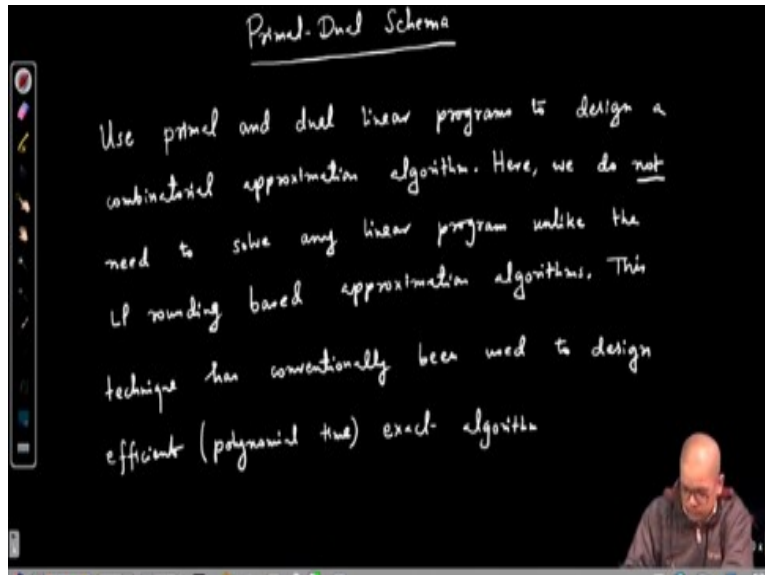 Primal-Dual Schema
Use primal and dual linear programs to design a
combinatorial approximation algorithm. Here, we do not
need to solve any linear program unlike the
LP rounding based approximation algorithms. This
technique has conventionally been used to design
efficient (polynomial time) exact algorithm